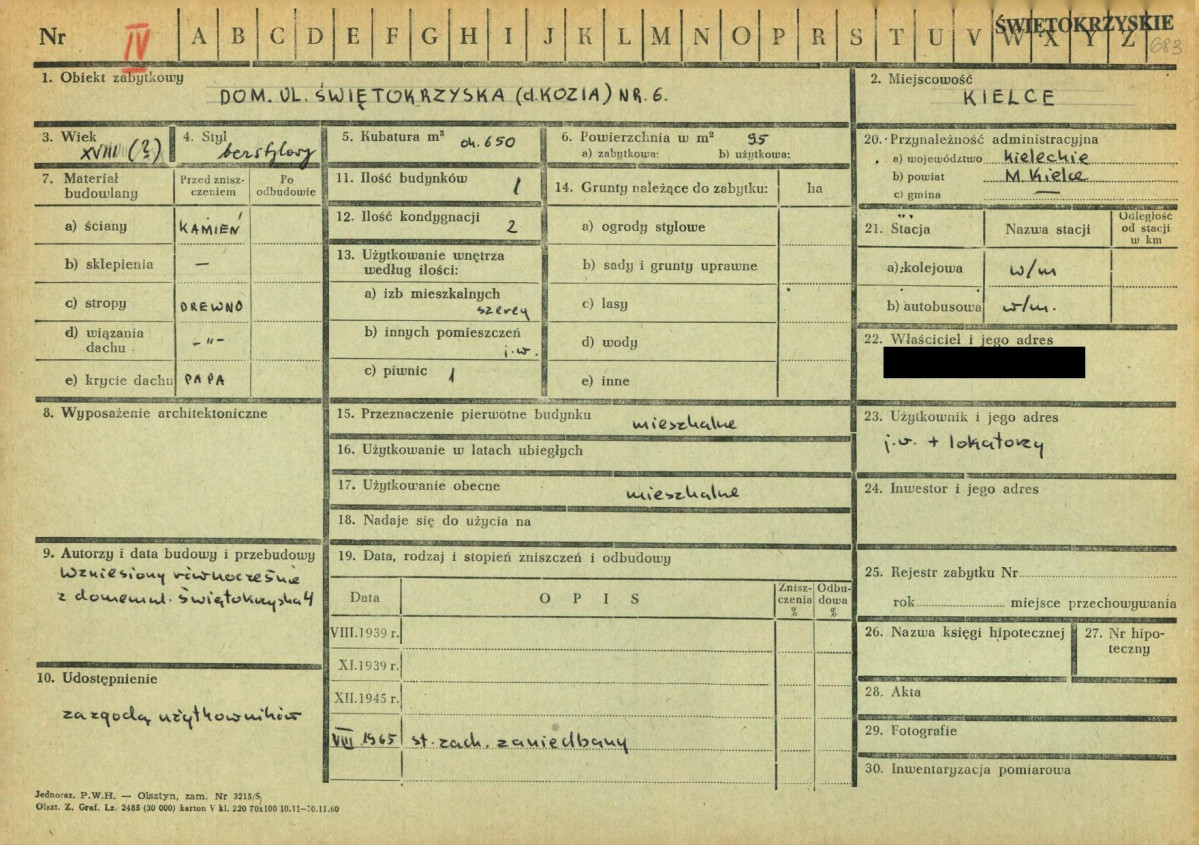 Nr IV A B C D E F G H I J K L M N O P R S T U V W X Y Z ŚWIĘTOKRZYSKIE
683
1. Obiekt zabytkowy
DOM. UL. ŚWIĘTOKRZYSKA (d. KOZIA) NR. 6.
2. Miejscowość
KIELCE
3. Wiek
XVIII (?)
4. Styl
bezstylowy
5. Kubatura m³ ok. 650
6. Powierzchnia w m² 95
a) zabytkowa: b) użytkowa:
7. Materiał budowlany
Przed znisz-
czeniem
Po
odbudowie
a) ściany KAMIEŃ
b) sklepienia —
c) stropy DREWNO
d) wiązania
dachu -"-
e) krycie dachu PAPA
8. Wyposażenie architektoniczne
9. Autorzy i data budowy i przebudowy
Wzniesiony równocześnie
z domem ul. Świętokrzyska 4
10. Udostępnienie
za zgodą użytkowników
11. Ilość budynków 1
12. Ilość kondygnacji 2
13. Użytkowanie wnętrza
według ilości:
a) izb mieszkalnych
szereg
b) innych pomieszczeń
j.w.
c) piwnic 1
14. Grunty należące do zabytku: ha
a) ogrody stylowe
b) sady i grunty uprawne
c) lasy
d) wody
e) inne
15. Przeznaczenie pierwotne budynku
mieszkalne
16. Użytkowanie w latach ubiegłych
17. Użytkowanie obecne
mieszkalne
18. Nadaje się do użycia na
19. Data, rodzaj i stopień zniszczeń i odbudowy
Data O P I S
Znisz-
czenia
%
Odbu-
dowa
%
VIII.1939 r.
XI.1939 r.
XII.1945 r.
VIII.1965 st. zach. zaniedbany
20. Przynależność administracyjna
a) województwo kieleckie
b) powiat M. Kielce
c) gmina —
21. Stacja Nazwa stacji
Odległość
od stacji
w km
a) kolejowa w/m
b) autobusowa w/m.
22. Właściciel i jego adres
23. Użytkownik i jego adres
j.w. + lokatorzy
24. Inwestor i jego adres
25. Rejestr zabytku Nr
rok miejsce przechowywania
26. Nazwa księgi hipotecznej
27. Nr hipo-
teczny
28. Akta
29. Fotografie
30. Inwentaryzacja pomiarowa
Jednoraz. P.W.H. — Olsztyn, zam. Nr 3215/S
Olszt. Z. Graf. Lz. 2485 (30 000) karton V kl. 220 70x100 10.11—30.11.60